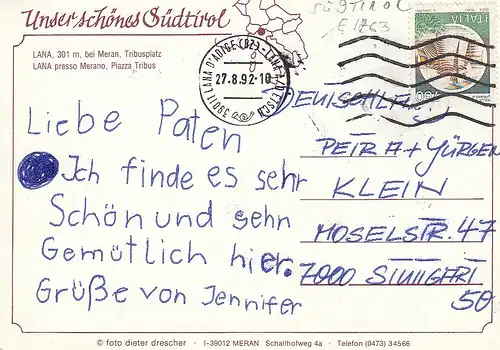 Unser schönes Südtirol
SÜDTIROL
E 1763
LANA, 301 m, bei Meran, Tribusplatz
LANA presso Merano, Piazza Tribus
39011 LANA D'ADIGE (BZ) - LANA A/D ETSCH
27.8.92-10
ITALIA
Liebe Paten
Ich finde es sehr
Schön und sehn
Gemütlich hier.
Grüße von Jennifer
DEUTSCHLAND
PETRA + JÜRGEN
KLEIN
MOSELSTR. 47
7000 STUTTGART
50
© foto dieter drescher · I-39012 MERAN Schallhofweg 4a · Telefon (0473) 34566